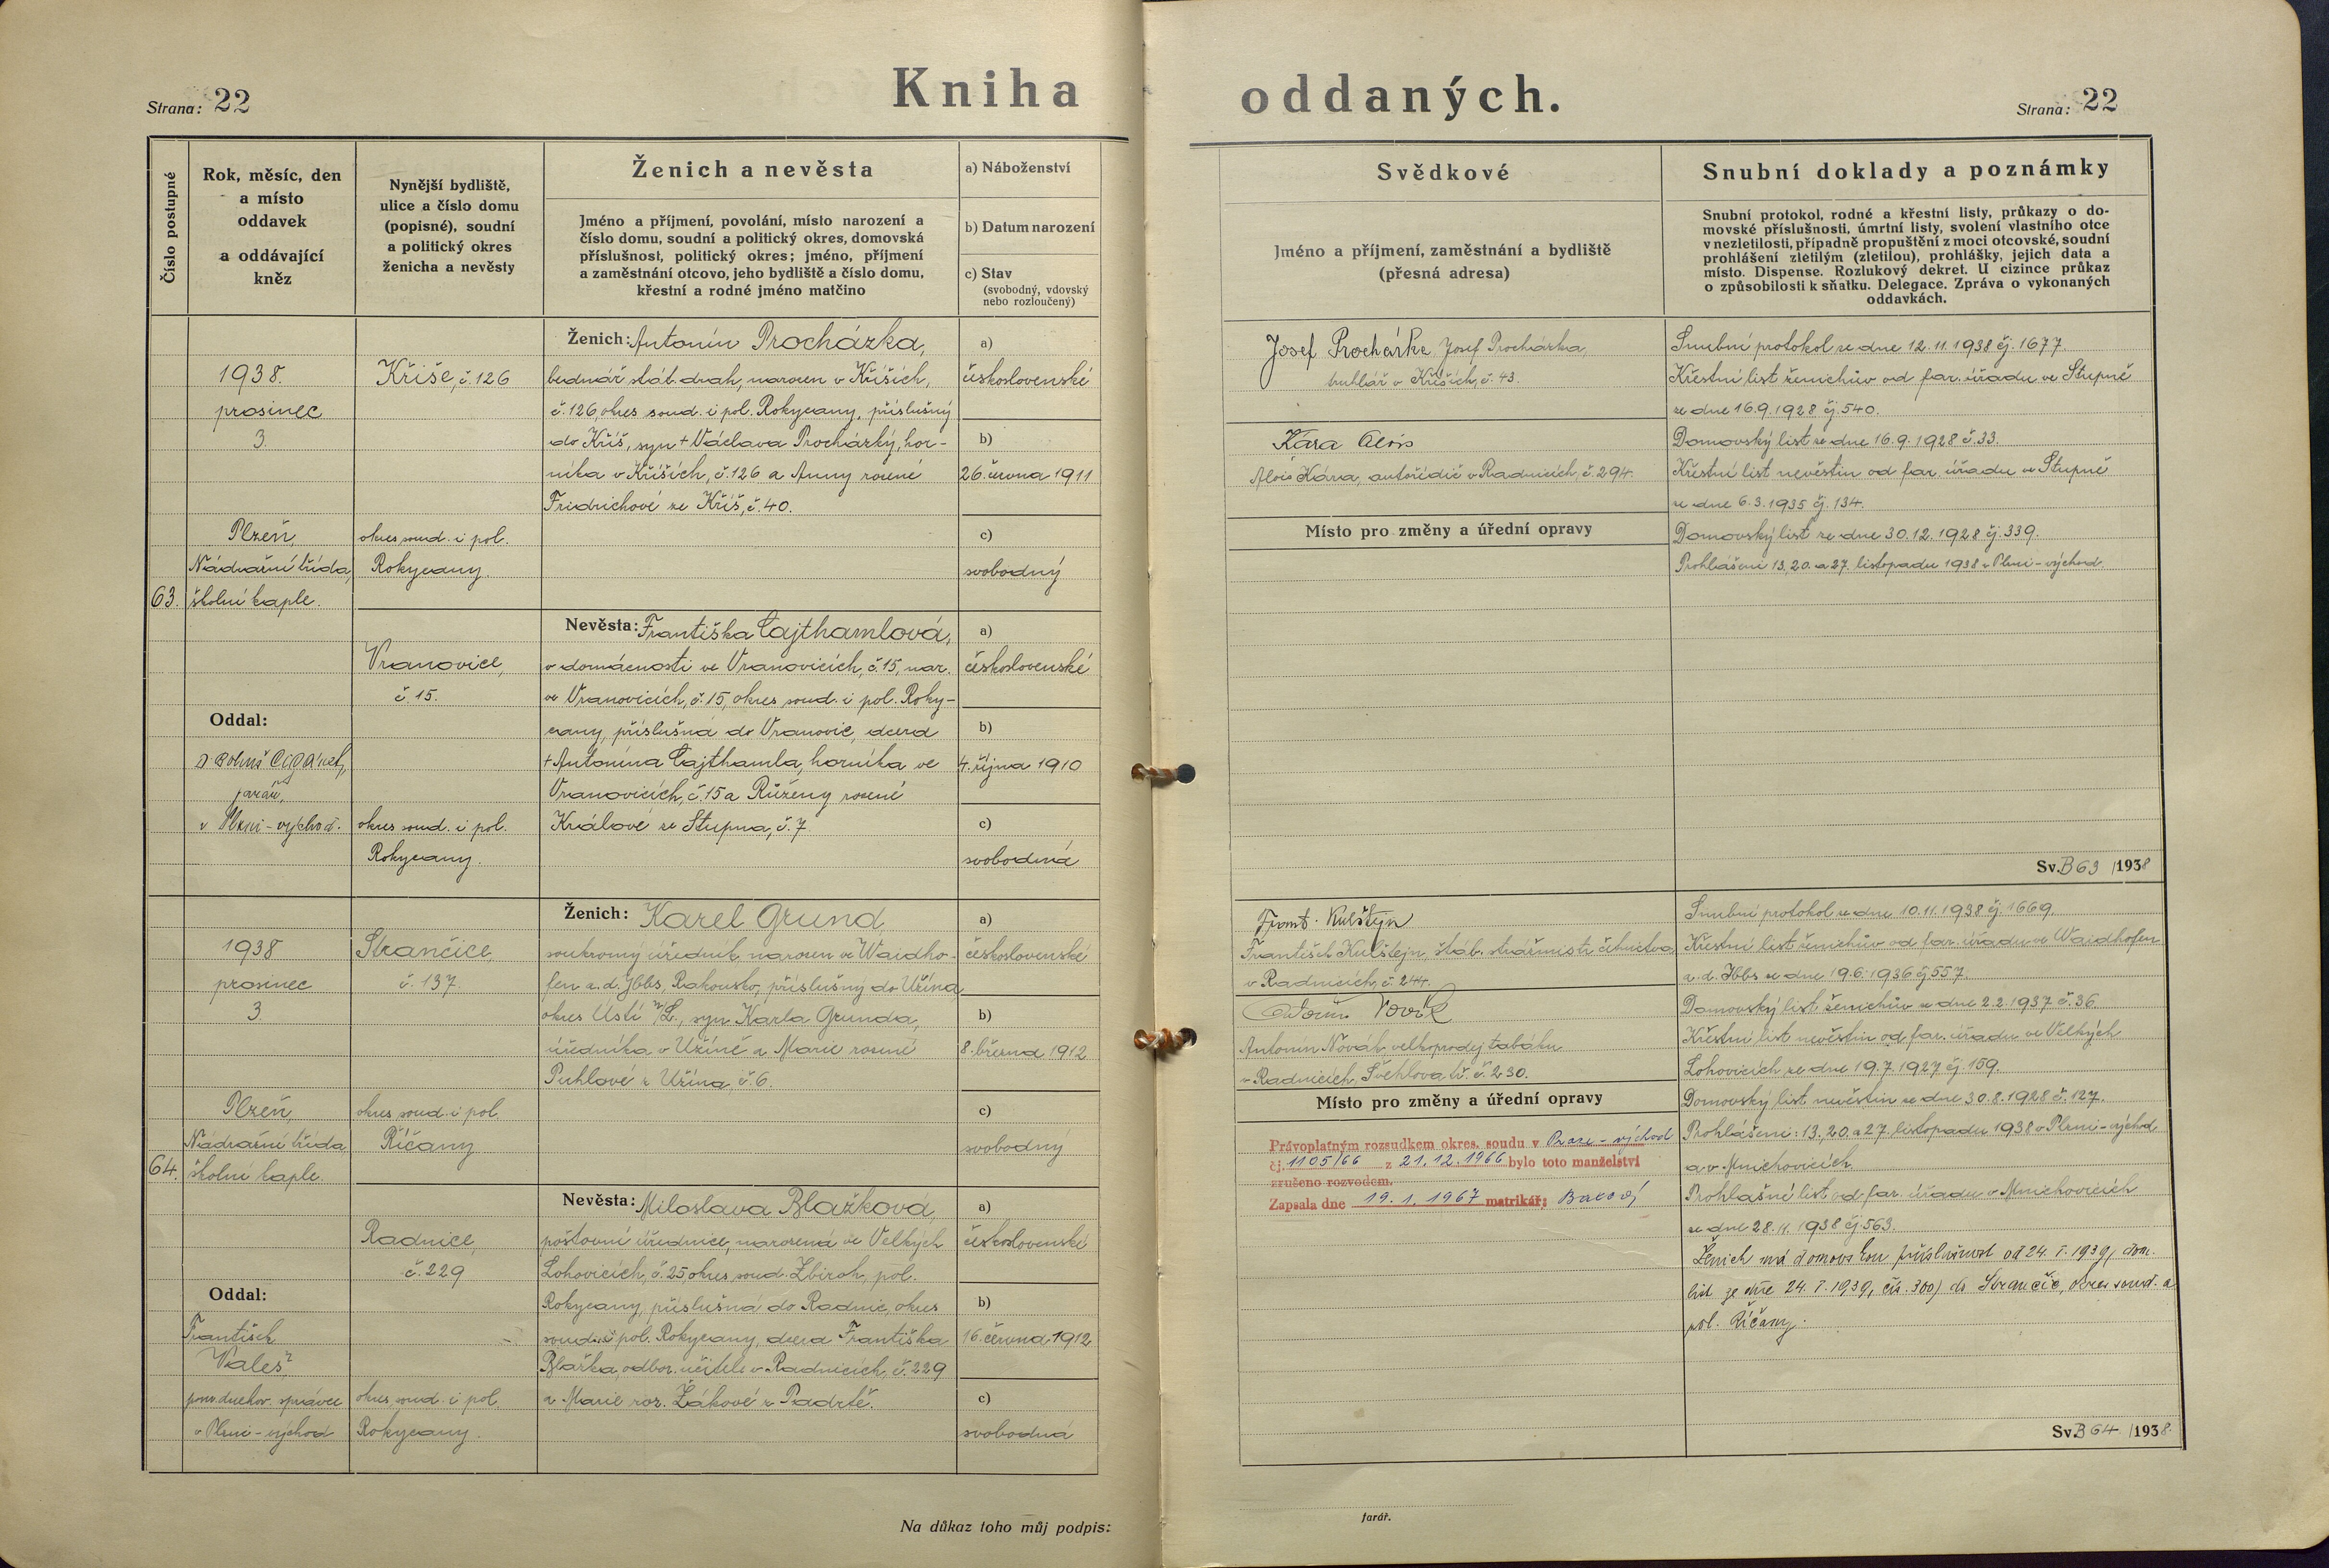 Strana: 22
Kniha
oddaných.
Strana: 22
Číslo postupné
Rok, měsíc, den
a místo
oddavek
a oddávající
kněz
Nynější bydliště,
ulice a číslo domu
(popisné), soudní
a politický okres
ženicha a nevěsty
Ženich a nevěsta
Jméno a příjmení, povolání, místo narození a
číslo domu, soudní a politický okres, domovská
příslušnost, politický okres; jméno, příjmení
a zaměstnání otcovo, jeho bydliště a číslo domu,
křestní a rodné jméno matčino
a) Náboženství
b) Datum narození
c) Stav
(svobodný, vdovský
nebo rozloučený)
Svědkové
Jméno a příjmení, zaměstnání a bydliště
(přesná adresa)
Snubní doklady a poznámky
Snubní protokol, rodné a křestní listy, průkazy o do-
movské příslušnosti, úmrtní listy, svolení vlastního otce
v nezletilosti, případně propuštění z moci otcovské, soudní
prohlášení zletilým (zletilou), prohlášky, jejich data a
místo. Dispense. Rozlukový dekret. U cizince průkaz
o způsobilosti k sňatku. Delegace. Zpráva o vykonaných
oddavkách.
63.
1938.
prosinec
3.
Plzeň,
Nádražní třída,
školní kaple.
Oddal:
farář,
v Plzni-východ.
Kříše, č. 126
okres soud. i pol.
Rokycany.
Vranovice,
č. 15.
okres soud. i pol.
Rokycany.
Ženich: Antonín Procházka,
bednář stát. drah, narozen v Kříších,
č. 126, okres soud. i pol. Rokycany, příslušný
do Kříš, syn + Václava Procházky, hor-
níka v Kříších, č. 126 a Anny rozené
Fridrichové ze Kříš, č. 40.
Nevěsta: Františka Cajthamlová,
v domácnosti ve Vranovicích, č. 15, nar.
ve Vranovicích, č. 15, okres soud. i pol. Roky-
cany, příslušná do Vranovic, dcera
+ Antonína Cajthamla, horníka ve
Vranovicích, č. 15 a Růženy rozené
Králové ze Stupna, č. 7.
a)
československé
b)
26. června 1911
c)
svobodný
a)
československé
b)
4. října 1910
c)
svobodná
Josef Procházka, Josef Procházka,
truhlář v Kříších, č. 43.
Kára Alois
Alois Kára, autořidič v Radnicích, č. 294.
Místo pro změny a úřední opravy
Snubní protokol ze dne 12.11.1938 čj. 1677.
Křestní list ženichův od far. úřadu ve Stupně
ze dne 16.9.1928 čj. 540.
Domovský list ze dne 16.9.1928 č. 33.
Křestní list nevěstin od far. úřadu ve Stupně
ze dne 6.3.1935 čj. 134.
Domovský list ze dne 30.12.1928 čj. 339.
Prohlášeni 13., 20. a 27. listopadu 1938 v Plzni-východ.
Sv. B 63 /1938
64.
1938
prosinec
3.
Plzeň,
Nádražní třída,
školní kaple.
Oddal:
František
Kaleš,
pom. duchov. správce
v Plzni-východ
Strančice,
č. 137
okres soud. i pol.
Říčany
Radnice,
č. 229
okres soud. i pol.
Rokycany.
Ženich: Karel Grund,
soukromý úředník, narozen ve Waidho-
fen a. d. Ybbs, Rakousko, příslušný do Užína
okres Ústí n/L., syn Karla Grunda,
úředníka v Užíně a Marie rozené
Puhlové z Užína, č. 6.
Nevěsta: Miloslava Blažková,
poštovní úřednice, narozená ve Velkých
Lohovicích, č. 25 okres soud. Zbiroh, pol.
Rokycany, příslušná do Radnic, okres
soud. i pol. Rokycany, dcera Františka
Blažka, odbor. učitele v Radnicích, č. 229
a Marie roz. Žákové z Padrtě.
a)
československé
b)
8. března 1912
c)
svobodný
a)
československé
b)
16. června 1912
c)
svobodná
Frant. Kulštejn
František Kulštejn, štáb. strážmistr četnictva
v Radnicích, č. 244.
Antonín Novák
Antonín Novák, velkoprodej tabáku
v Radnicích, Švehlova tř. č. 230.
Místo pro změny a úřední opravy
Právoplatným rozsudkem okres. soudu v Praze-východ
čj. 1105/66 z 21.12.1966 bylo toto manželství
zrušeno rozvodem.
Zapsala dne 19.1.1967 matrikář:
Snubní protokol ze dne 10.11.1938 čj. 1669.
Křestní list ženichův od far. úřadu ve Waidhofen
a. d. Ybbs ze dne 19.6.1936 čj 557.
Domovský list ženichův ze dne 2.2.1937 č. 36.
Křestní list nevěstin od far. úřadu ve Velkých
Lohovicích ze dne 19.7.1927 čj. 159.
Domovský list nevěstin ze dne 30.8.1928 č. 127.
Prohlášeni: 13. 20. a 27. listopadu 1938 v Plzni-východ
a v Mnichovicích.
Prohlašné list od far. úřadu v Mnichovicích
ze dne 28.11.1938 čj. 563.
Ženich má domovskou příslušnost od 24. I. 1939, dom.
list ze dne 24. I. 1939, čís. 300) do Strančic, okres soud. a
pol. Říčany.
Sv. B 64 /1938.
Na důkaz toho můj podpis:
farář.